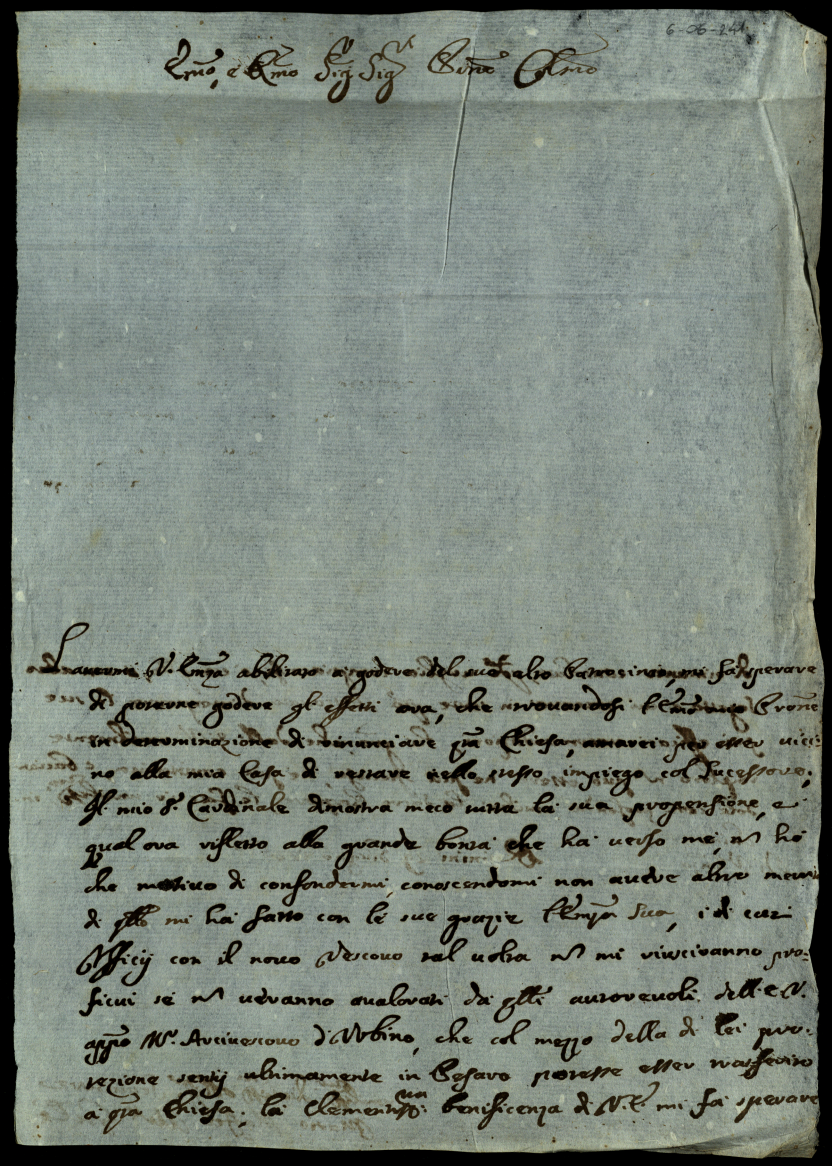 6-06-241
Emo, e Rmo Sig.r Sig.r Prone Colmo
L'avermi V. Emza abilitato a godere del suo alto Patrocinio, mi fa sperare
di poterne godere gl'effetti ora, che trovandosi l'Emo mio Prone
in determinazione di rinunciare qta Chiesa, amarei per esser vici=
no alla mia Casa di restare nello stesso impiego col Sucessore.
Il mio S.r Cardinale dimostra meco tutta la sua propensione, e
qual ora rifletto alla grande bontà che hà verso me, nõ hò
che motivo di confondermi, conoscendomi non avere altro merito
di qllo mi hà fatto con le sue grazie l'Emza Sua, i di cui
Officij con il novo Vescovo tal volta nõ mi riusciranno pro=
ficui se nõ veranno avalorati da qlli autorevoli dell'E. V.
appso Mr. Arcivescovo d'Urbino, che col mezzo della di lei pro=
tezione sentij ultimamente in Pesaro potesse esser trasferito
a qta Chiesa; la Clementissma benificenza di V. E. mi fa sperare